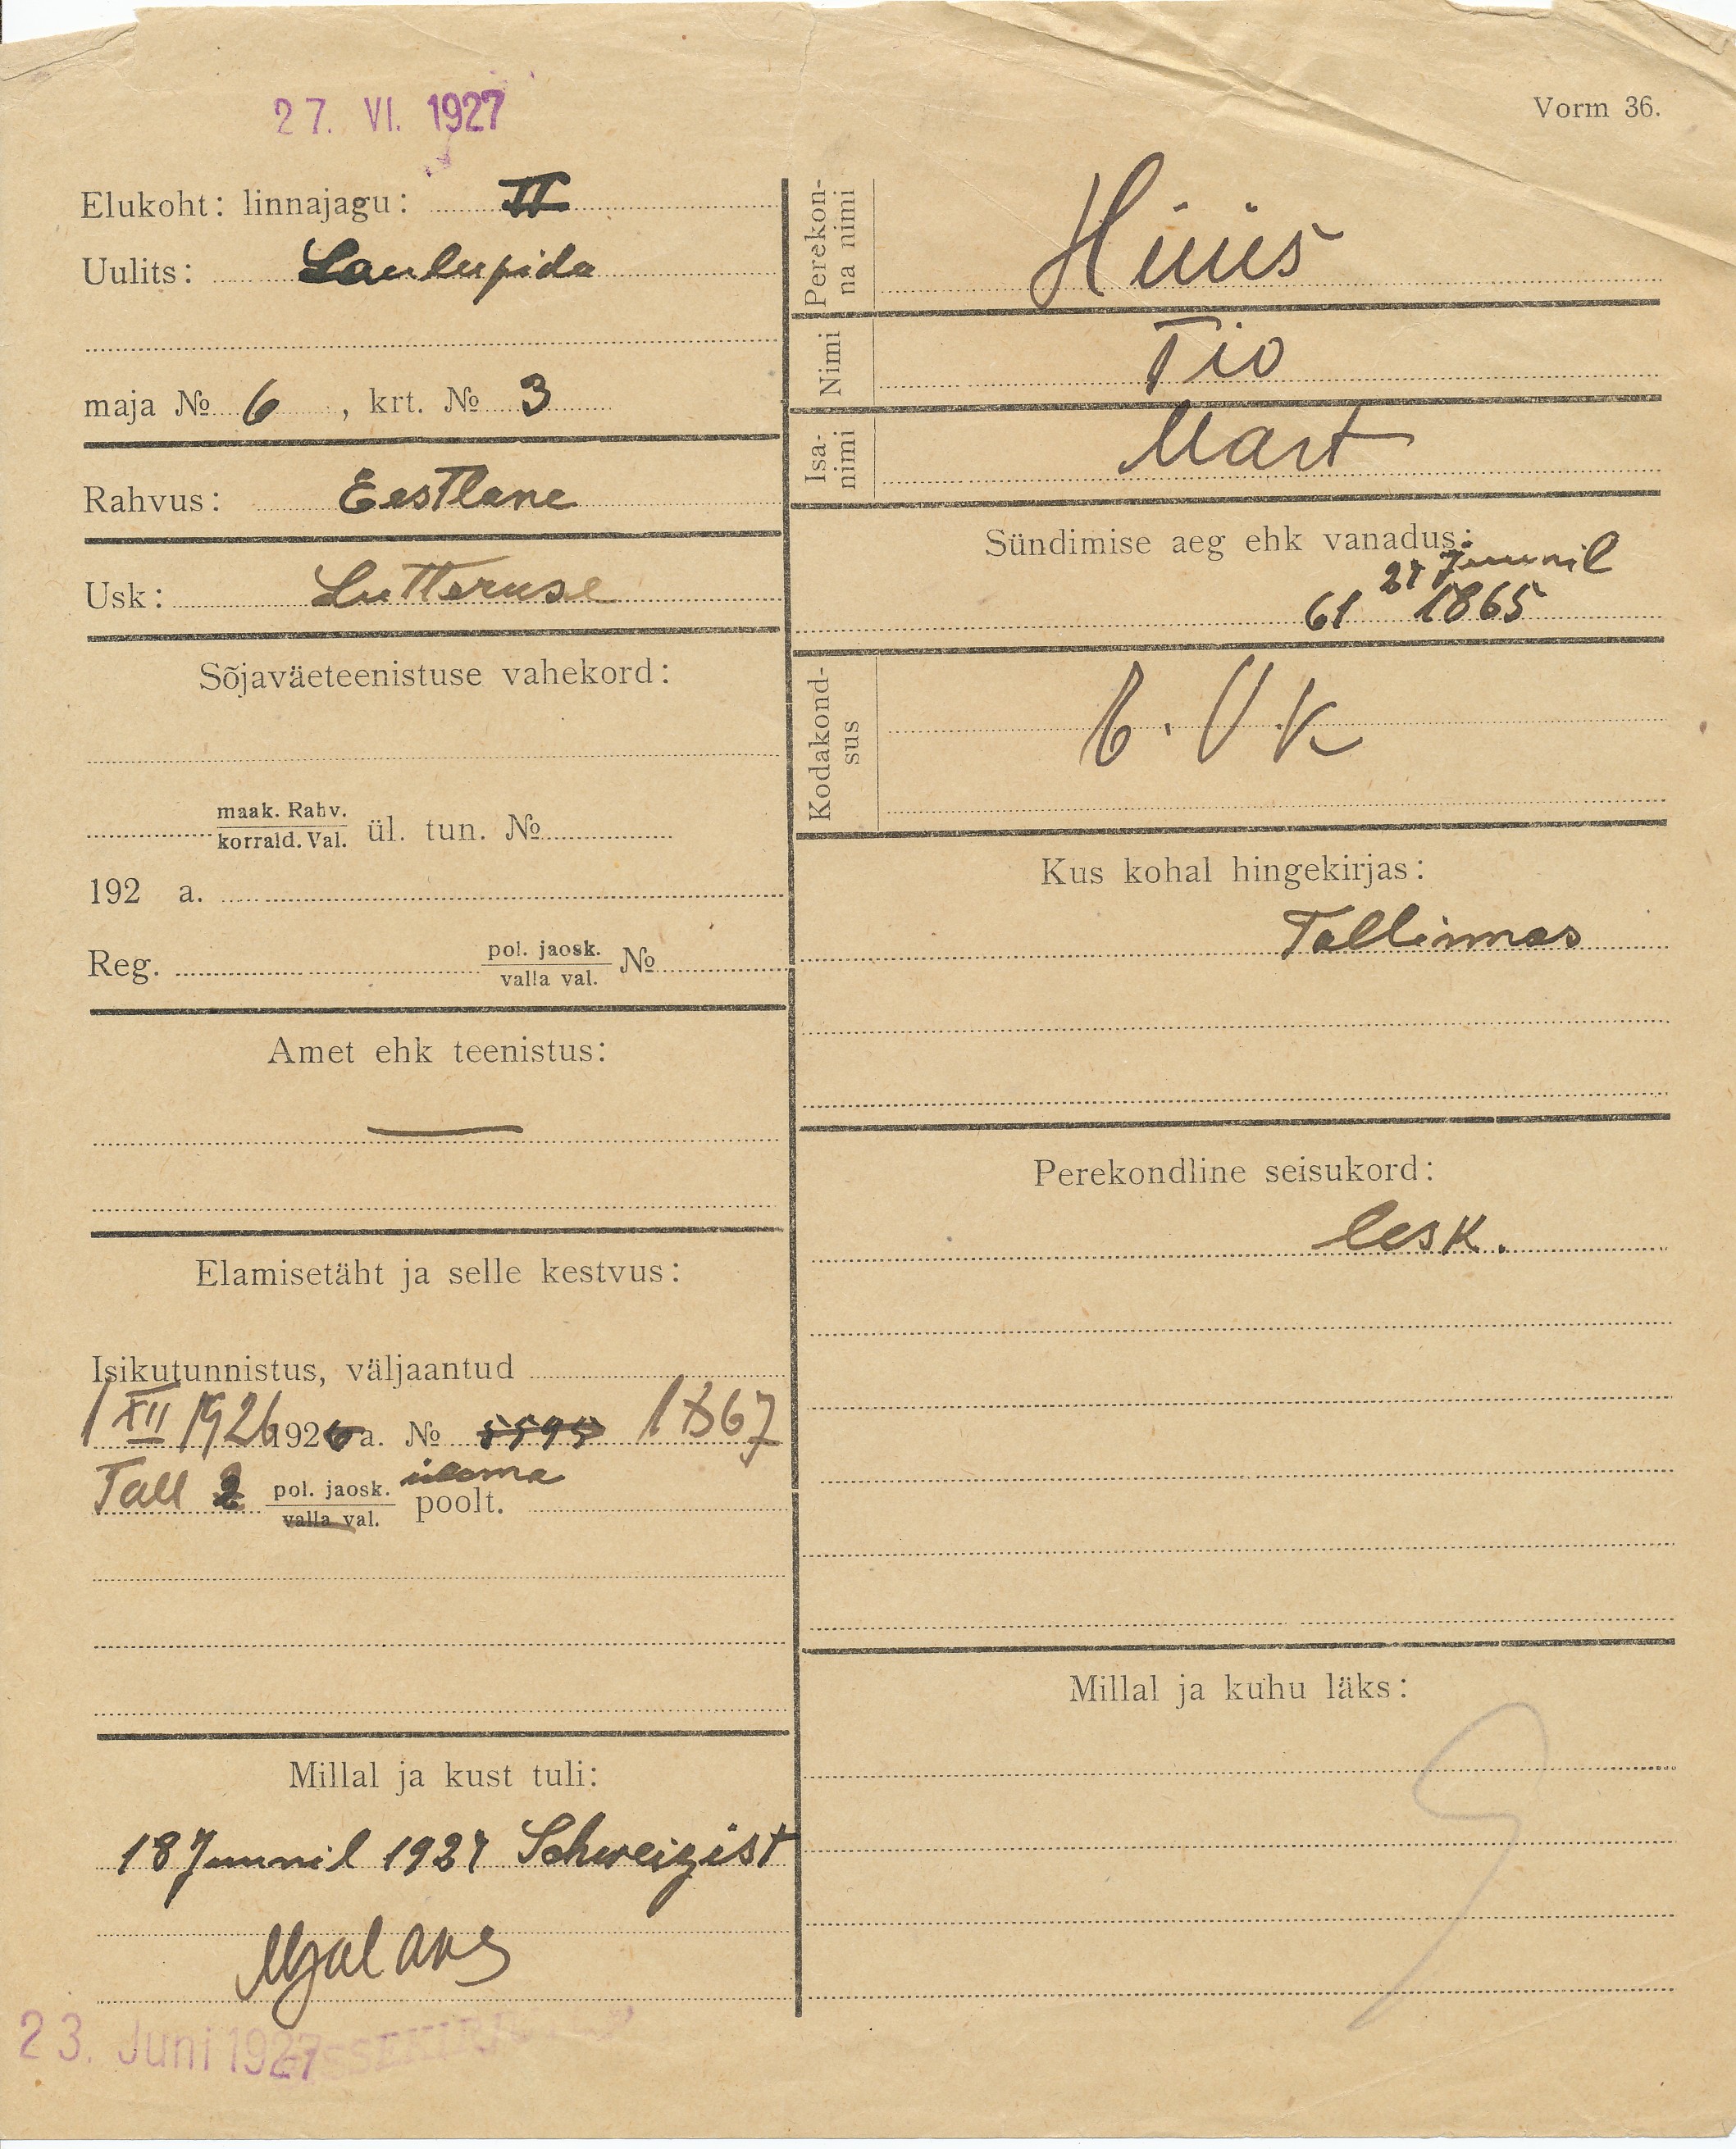 27. VI. 1927
Vorm 36.
Elukoht: linnajagu: II
Uulits: Laulupido
maja № 6, krt. № 3
Rahvus: Eestlane
Usk: Lutteruse
Sõjaväeteenistuse vahekord:
maak. Rahv.
korrald. Val. ül. tun. №
192 a.
Reg. pol. jaosk.
valla val. №
Amet ehk teenistus:
Elamisetäht ja selle kestvus:
Isikutunnistus, väljaantud
1 XII 1926 1926 a. № 5595 1867
Tall 2 pol. jaosk. ülema
valla val. poolt.
Millal ja kust tuli:
18 Juunil 1927 Schweizist
23. Juni 1927
SISSEKIRJUTATUD
Perekon-
na nimi Hiiis
Nimi Tio
Isa-
nimi Mart
Sündimise aeg ehk vanadus:
27 Juunil
61 1865
Kodakond-
sus E. V K
Kus kohal hingekirjas:
Tallinnas
Perekondline seisukord:
lesk.
Millal ja kuhu läks: